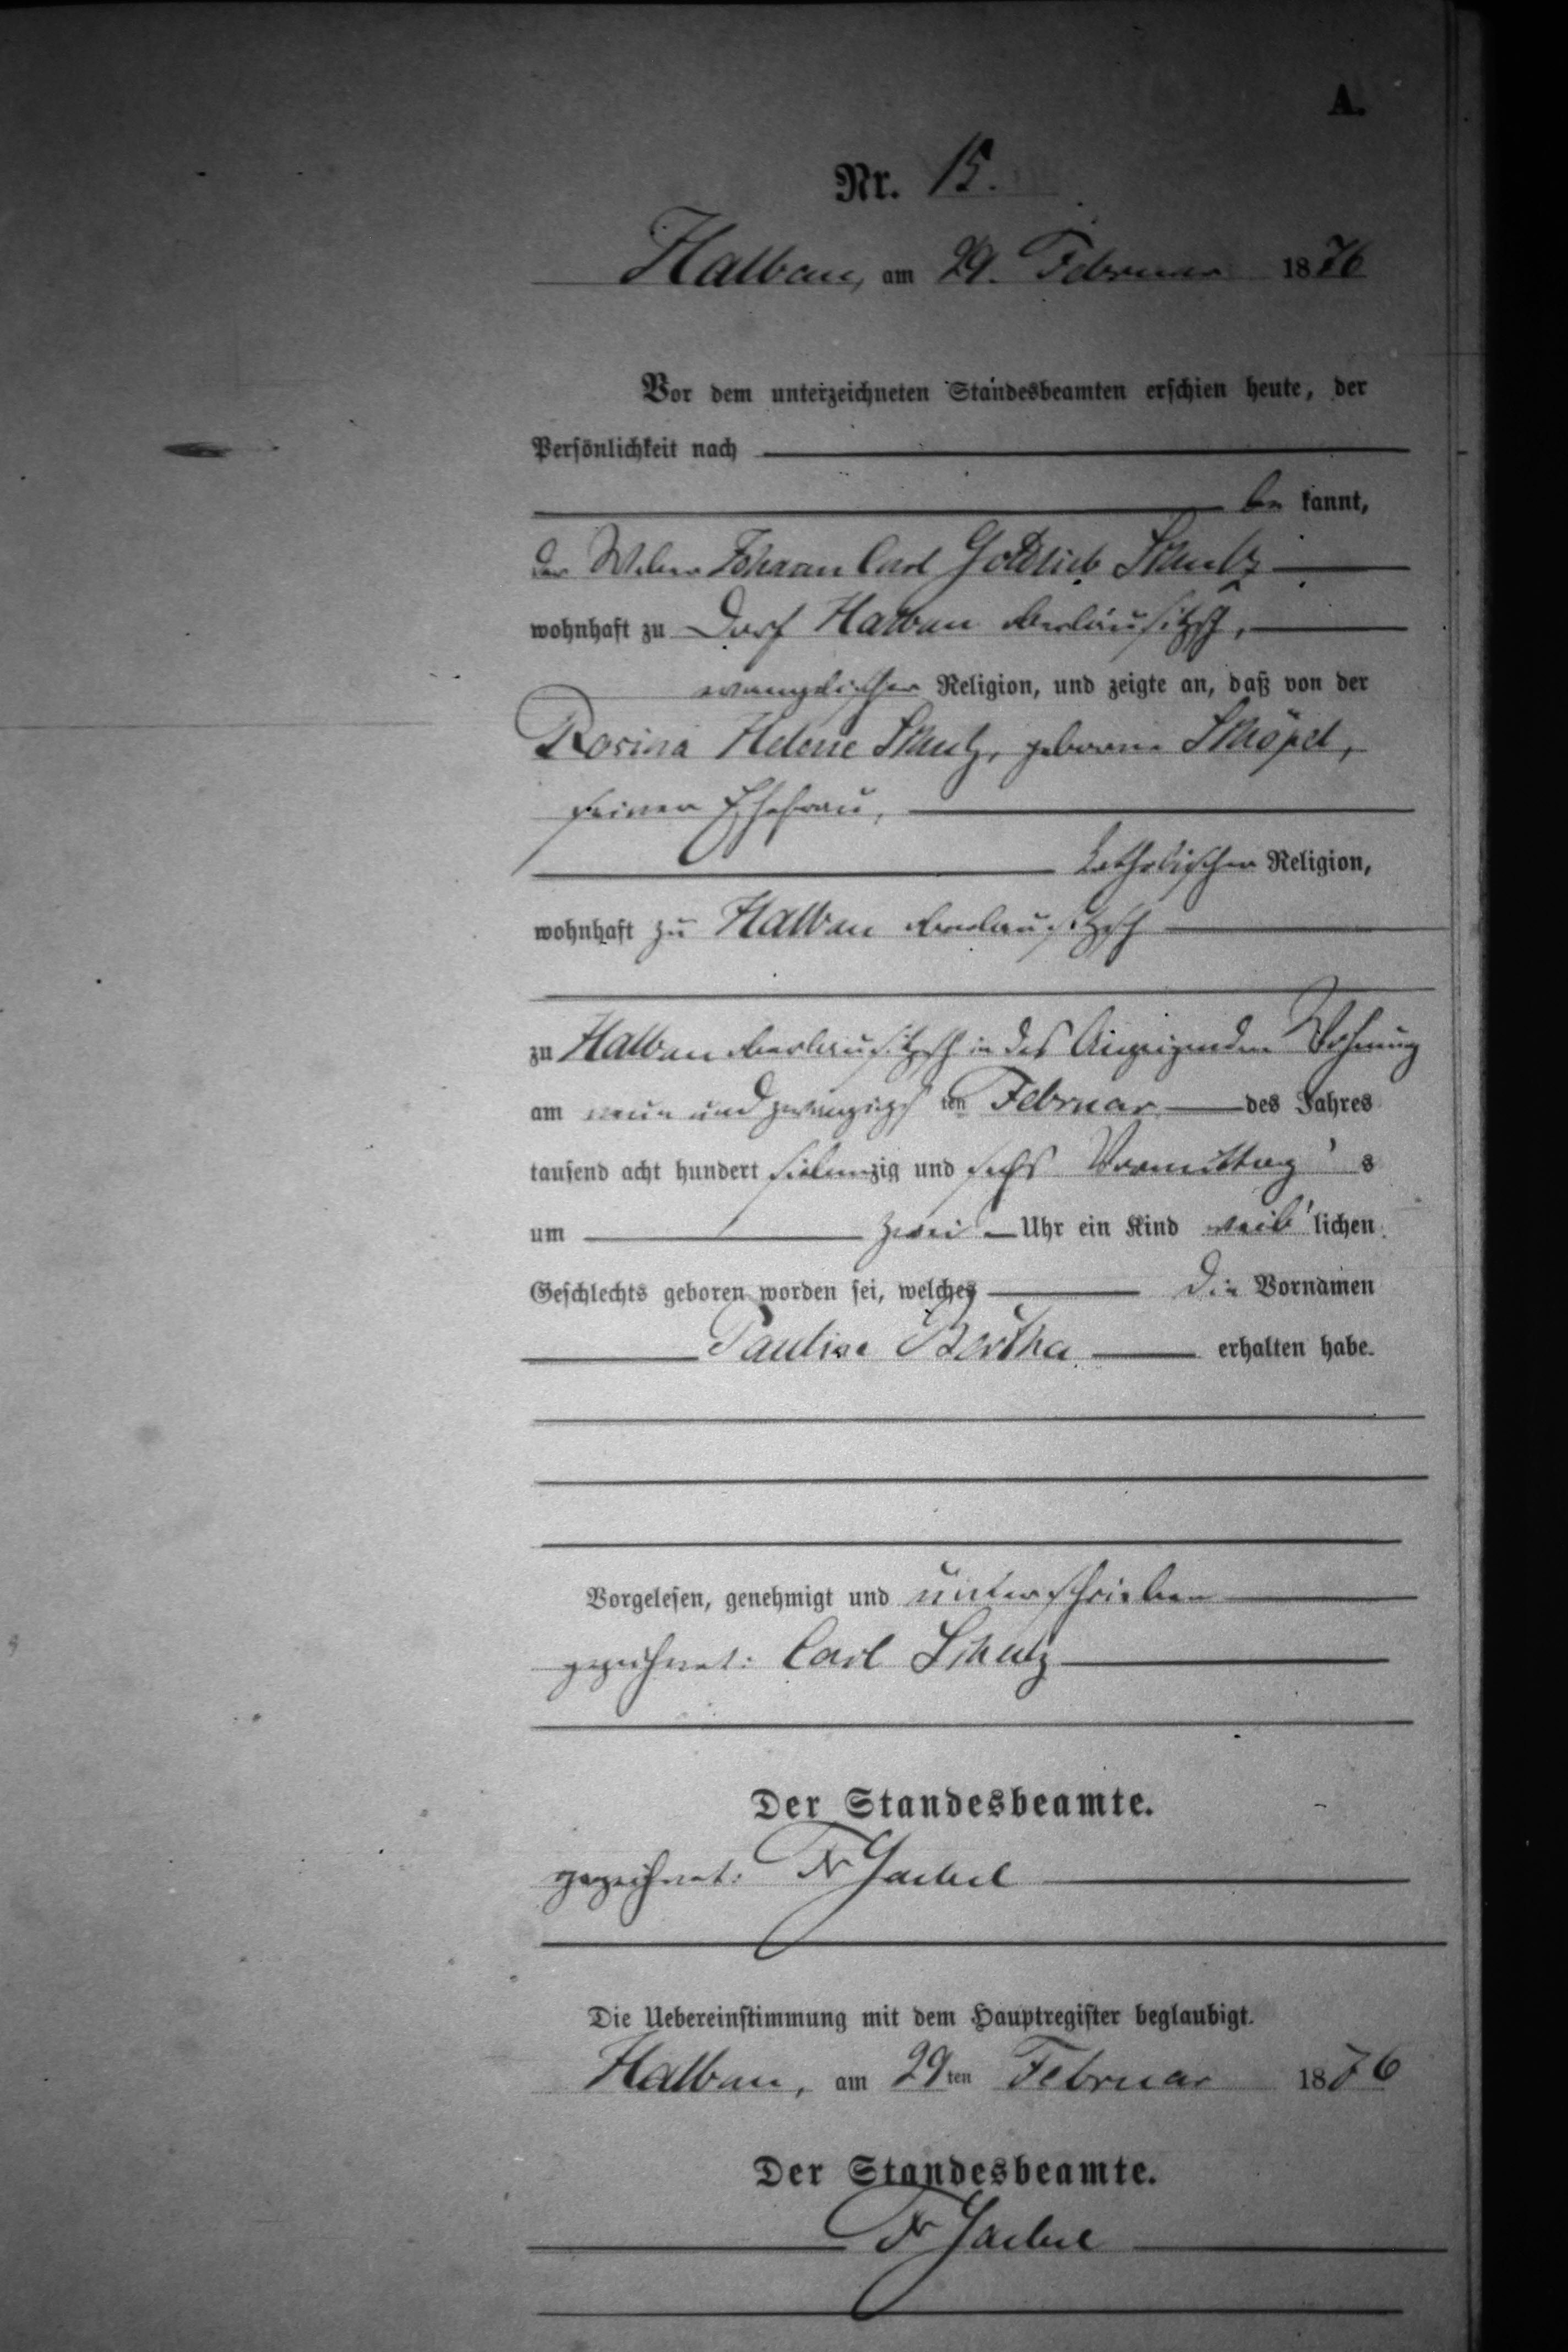 A.
Nr. 15.
Halbau, am 29. Februar 1876
Vor dem unterzeichneten Standesbeamten erschien heute, der
Persönlichkeit nach
be kannt,
der Weber Johann Carl Gottlieb Schulz
wohnhaft zu Dorf Halbau Oberlausitzsch,
evangelischer Religion, und zeigte an, daß von der
Rosina Helene Schulz, geborene Schöpel,
seiner Ehefrau,
katholischer Religion,
wohnhaft zu Halbau Oberlausitzsch
zu Halbau Oberlausitzsch in des Anzeigenden Wohnung
am neun und zwanzigsten Februar des Jahres
tausend acht hundert siebenzig und sechs Vormittags
um zwei Uhr ein Kind weiblichen
Geschlechts geboren worden sei, welches die Vornamen
Pauline Bertha erhalten habe.
Vorgelesen, genehmigt und unterschrieben
gezeichnet: Carl Schulz
Der Standesbeamte.
gezeichnet:
Die Uebereinstimmung mit dem Hauptregister beglaubigt.
Halbau, am 29ten Februar 1876
Der Standesbeamte.